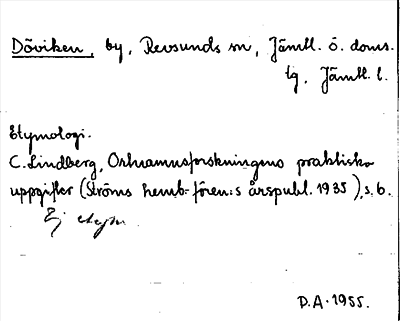 Döviken, by, Revsunds sn, Jämtl. ö. doms.
tg, Jämtl. l.
Etymologi.
C. Lindberg, Ortnamnsforskningens praktiska
uppgifter (Ströms hemb.-fören:s årspubl. 1935), s. 6.
Ej etym
D.A. 1955.